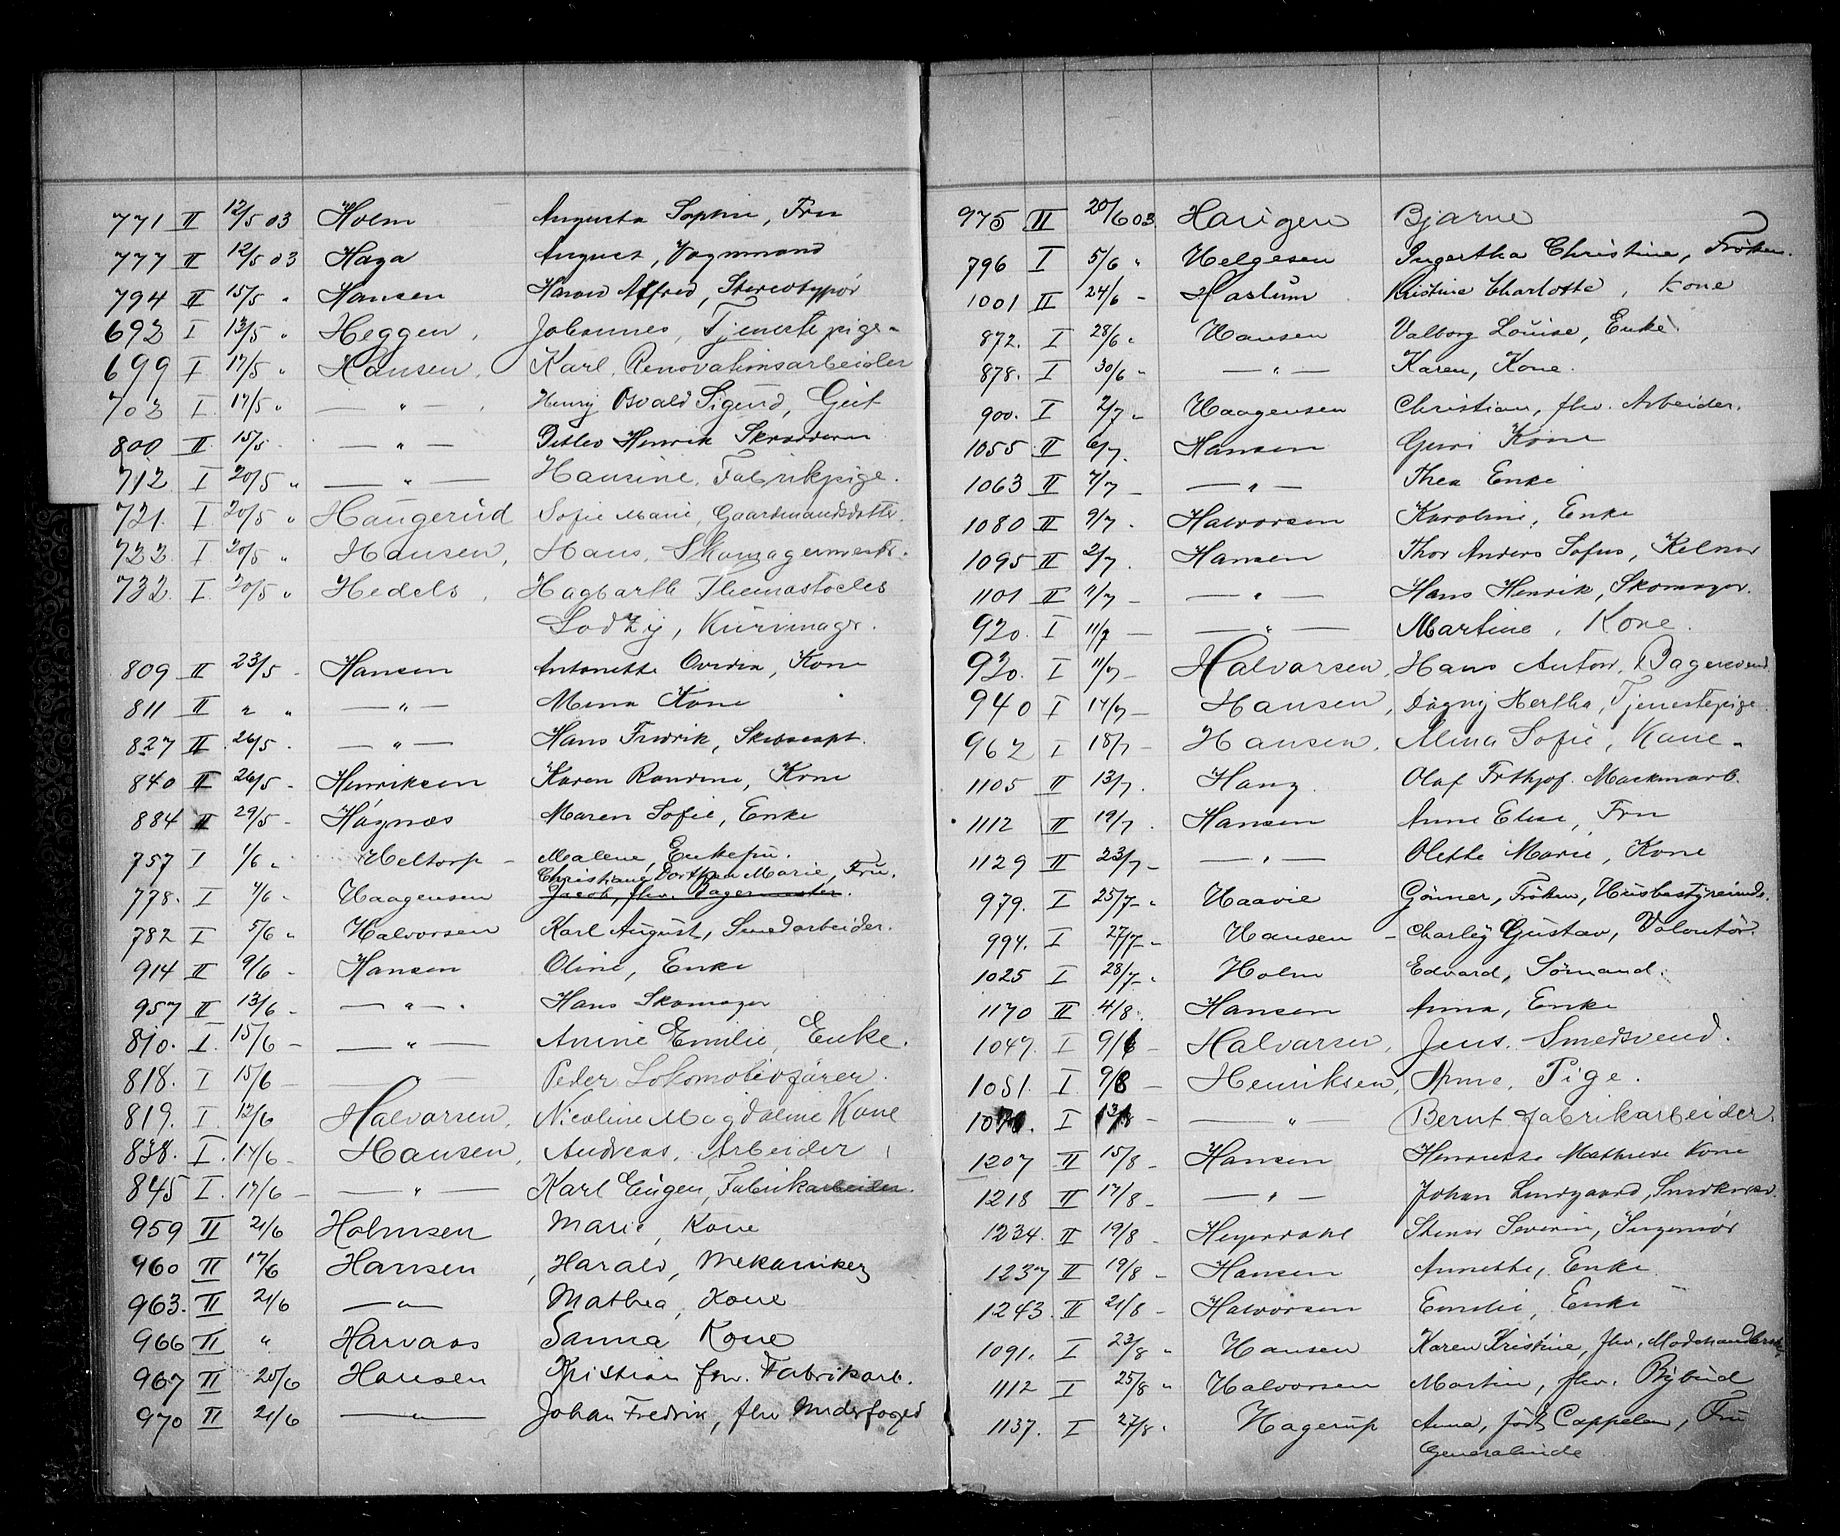 771 II 12/5 03 Holm Augusta Sophie, Fru
777 II 12/5 03 Haga August, Vognmand
794 II 15/5 " Hansen Harald Alfred, Stereotypør
692 I 13/5 " Heggen, Johannes, Tjenestepige
699 I 17/5 " Hansen, Karl, Renovationsarbeider
703 I 17/5 " — " — Henrij Osvald Sigurd, Gut
800 II 15/5 — " — Detlev Henrik Skrædderm
712 I 20/5 " — " — Hansine, Fabrikpige.
721. I 20/5 " Haugerud Sofie Marie, Gaardmandsdatter.
723. I 20/5 " Hansen, Hans, Skomagermester.
732. I 20/5 " Hedels, Hagbarth Themastocles
Lodzij, Kurvmager.
809 II 23/5 - Hansen Antonette Ovidia, Kone
811 II " " — " — Mina Kone
827 II 26/5 — " — Hans Fredrik, Skibscapt.
840 II 26/5 - Henriksen Karen Randine, Kone
884 II 29/5 - Høgnæs Maren Sofie, Enke
757 I 1/6 " Heltorp - Malene, Enkefru.
Christiane Dorthea Marie, Fru.
778. I 4/6 - Haagensen Jacob, fhv. Bagermester.
782 I 5/6 " Halvorsen Karl August, Smedarbeider.
914 II 9/6 - Hansen Oline, Enke
957 II 13/6 - — " — Hans Skomager
810. I. 15/6 - — " — Anine Emilie, Enke.
818. I 15/6 - — Peder Lokomotivfører.
819. I. 12/6 Halvorsen, Nicoline Magdaline Kone
838. I. 17/6 - Hansen, Andreas, Arbeider
845 I. 17/6 - — " — Karl Eugen, Fabrikarbeider.
959 II 21/6 Holmsen Marie, Kone
960 II 17/6 Hansen, Harald, Mekaniker
963. II 21/6 — " — Mathea, Kone
966 II " Harvaas Sanna Kone
967 II 20/6 Hansen Kristian fhv. Fabrikarb.
970 II 21/6 — " — Johan Fredrik, fhv Underfoged
975 II 20/6 03. Haugen Bjarne
796 I 5/6 " Helgesen Ingertha Christine, Frøken.
1001 II 24/6 - Haslum Kristine Charlotte, Kone
872. I 28/6 " Hansen Valborg Louise, Enke
878. I 30/6 " — " — Karen, Kone.
900. I 2/7 " Haagensen Christian, fhv. Arbeider.
1055 II 6/7. Hansen Guri Kone
1063 II 7/7 - — " — Thea Enke
1080 II 9/7. Halvorsen Karoline, Enke
1095 II 2/7. Hansen Thor Anders Sofus, Kelner
1101 II 11/7 - — " — Hans Henrik, Skomager.
920. I 11/7 — — " — Martine, Kone.
930. I 11/7 - Halvorsen, Hans Anton, Bagersvend.
940 I 14/7 - Hansen, Dagny Hertha, Tjenestepige.
962 I 18/7 - Hansen, Alma Sofie, Kone -
1105 II 13/7. Haug. Olaf Frthjof. Maskinarb.
1112 II 19/7. Hansen Anne Elise, Fru
1129 II 23/7 - — " — Olette Marie, Kone
979. I 25/7 - " Haavie Gunner, Frøken, Husbestyrerinde.
994. I 27/7 - " Hansen - Charley Gustav, Volontør.
1025 I 28/7 - " Holm Edvard, Sømand.
1170 II 4/8. Hansen Anna, Enke
1047. I 9/8 - Halvorsen, Jens. Smedsvend.
1051. I 9/8 - Henriksen, Anna, Pige.
I 13/8 - — " — Bernt Fabrikarbeider.
1207 II 15/8 - Hansen Henriette Mathilde Kone
1218 II 17/8 - — " — Johan Lundgaard,
1234. II 19/8. Heyerdahl Stener Severin, Ingeniør
1237 II 19/8 - Hansen Annette, Enke
1243. II 21/8 - Halvorsen Emilie, Enke
1091. I 23/8 " Hansen Karen Kristine, fhv. Modehandlerske
1112 I 25/8 " Halvorsen Martin, fhv. Bybud
1137. I 27/8. Hagerup Anna, født Cappelen, Fru
Generalinde